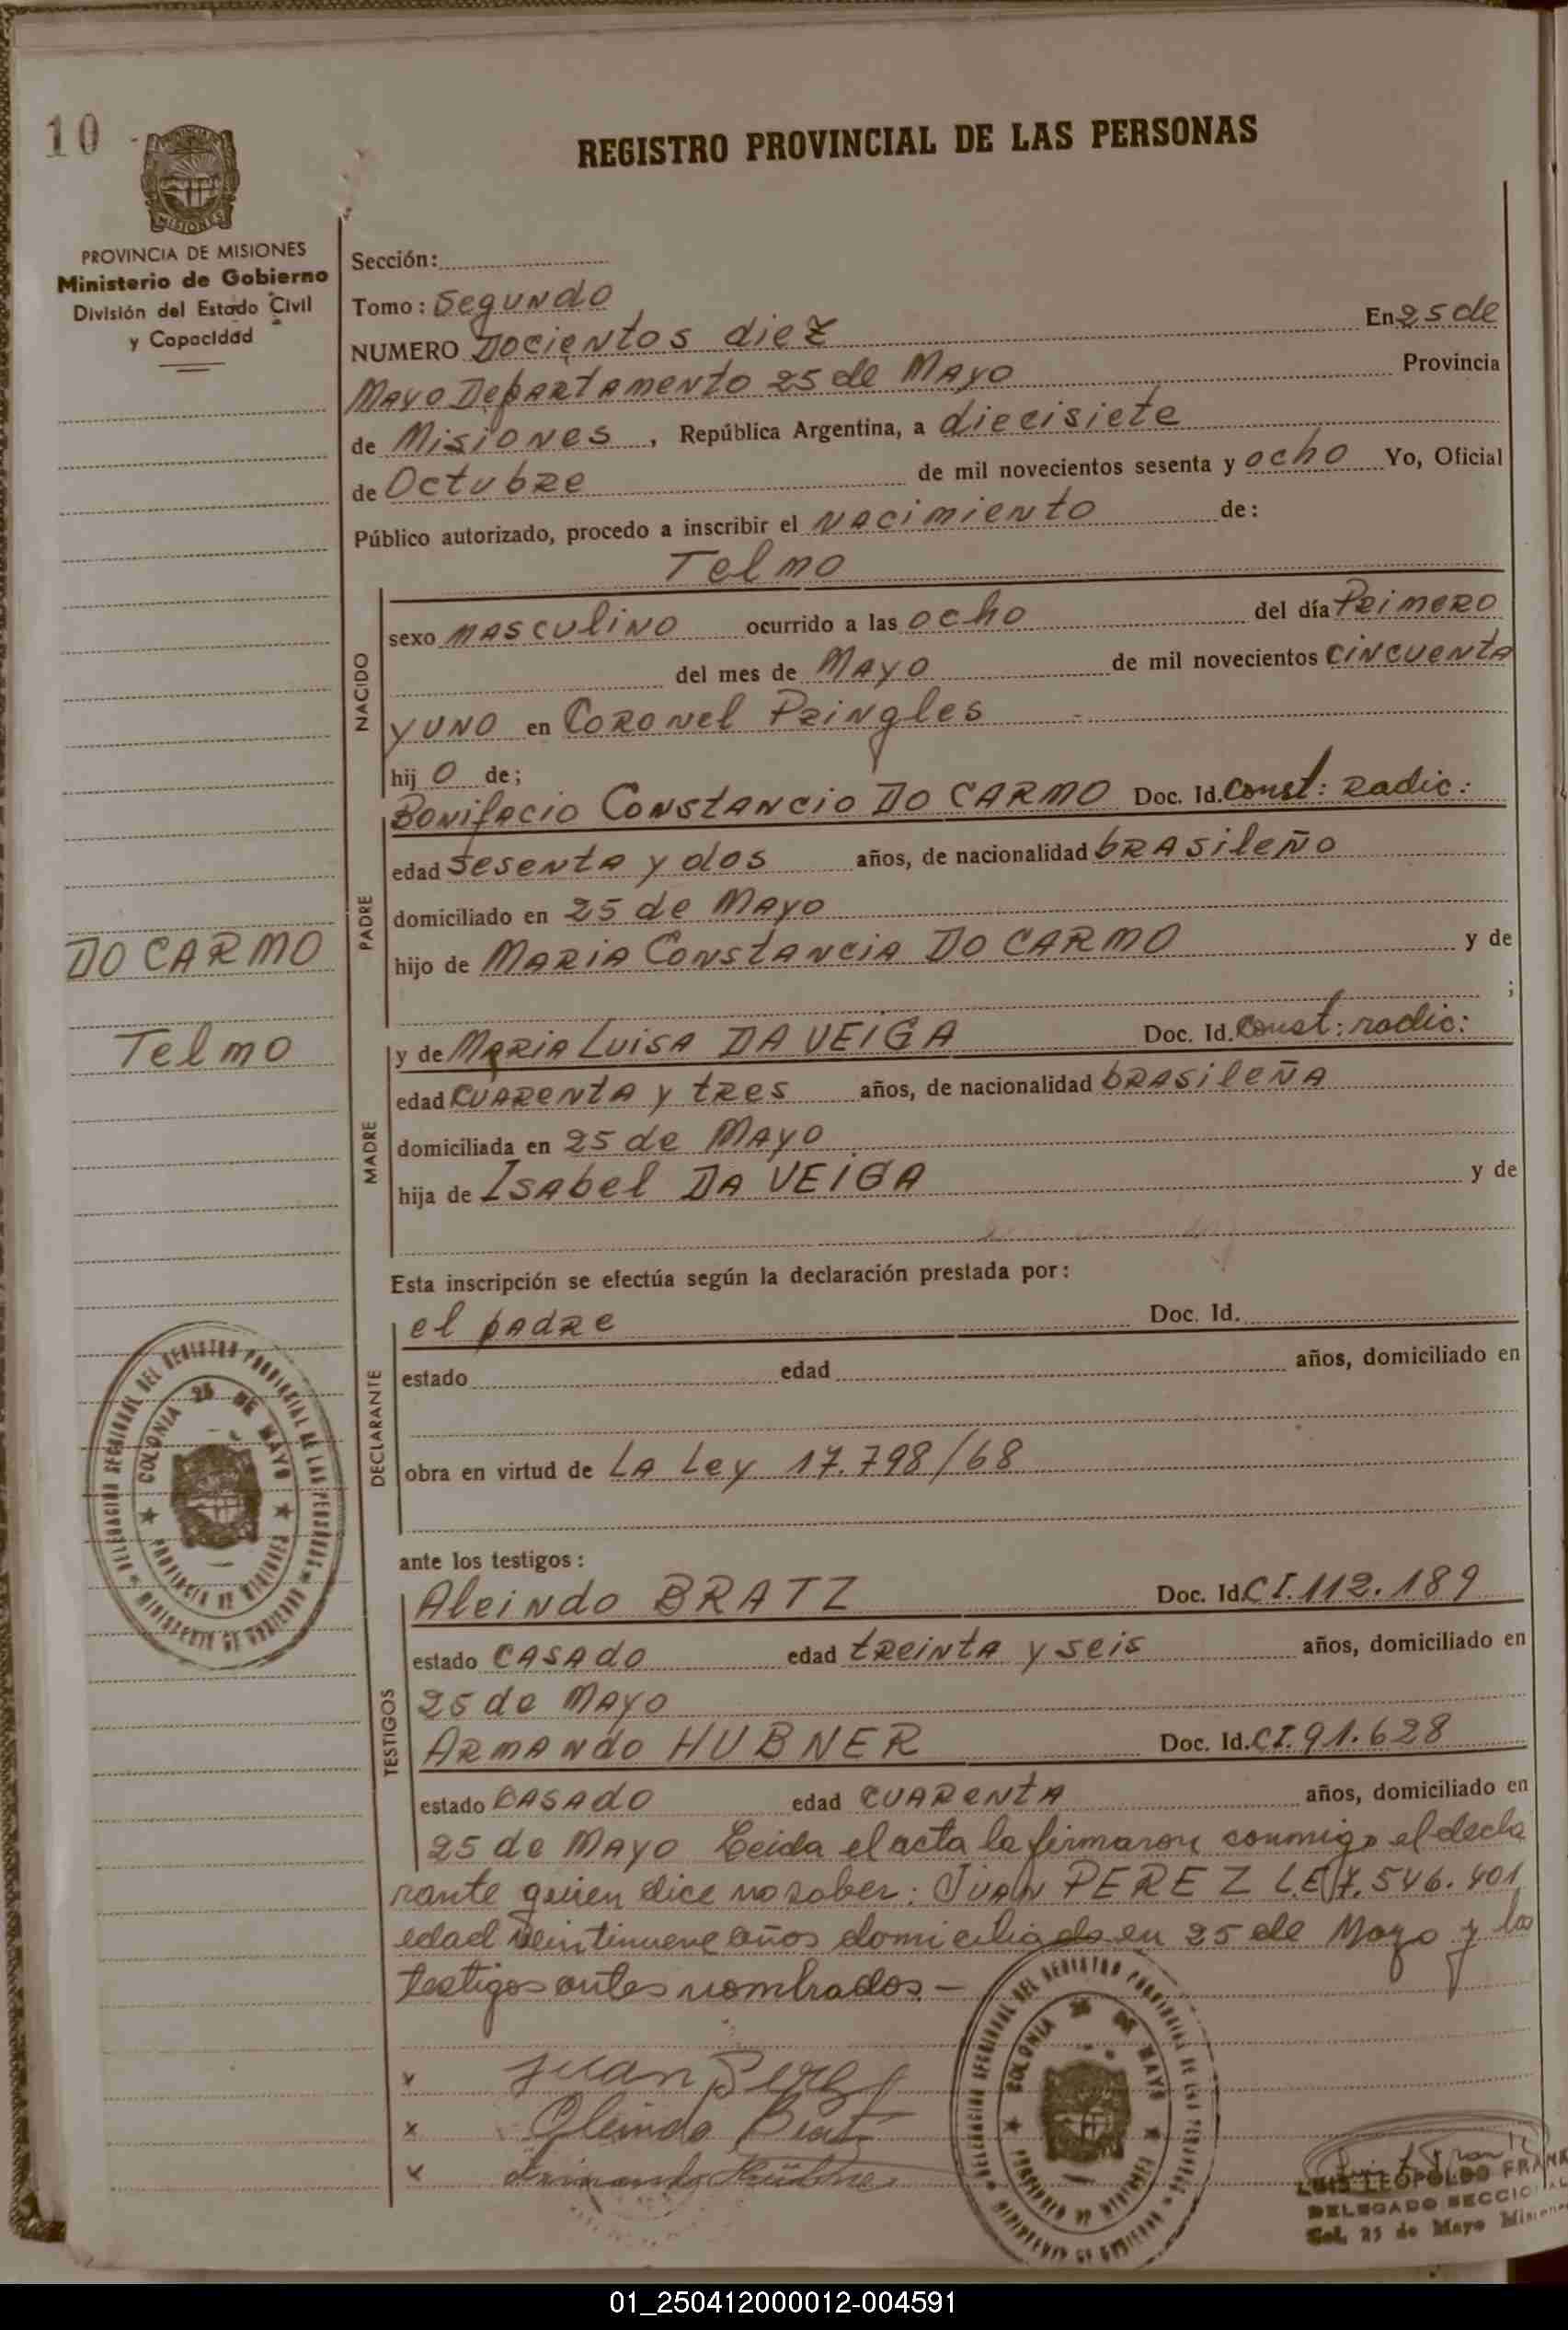 10
REGISTRO PROVINCIAL DE LAS PERSONAS
MISIONES
PROVINCIA DE MISIONES
Ministerio de Gobierno
División del Estado Civil
y Capacidad
Sección:
Tomo: Segundo
NUMERO Docientos diez En 25 de
Mayo Departamento 25 de Mayo Provincia
de Misiones, República Argentina, a diecisiete
de Octubre de mil novecientos sesenta y ocho Yo, Oficial
Público autorizado, procedo a inscribir el nacimiento de:
Telmo
NACIDO
sexo masculino ocurrido a las ocho del día Primero
del mes de Mayo de mil novecientos cincuenta
y uno en Coronel Pringles
hij o de;
PADRE
Bonifacio Constancio DO CARMO Doc. Id. Const: Radic:
edad sesenta y dos años, de nacionalidad brasileño
domiciliado en 25 de Mayo
hijo de Maria Constancia DO CARMO y de
;
DO CARMO
Telmo
MADRE
y de Maria Luisa DA VEIGA Doc. Id. Const: radic:
edad cuarenta y tres años, de nacionalidad brasileña
domiciliada en 25 de Mayo
hija de Isabel DA VEIGA y de
Esta inscripción se efectúa según la declaración prestada por:
DECLARANTE
el padre Doc. Id.
estado edad años, domiciliado en
obra en virtud de La Ley 17.798/68
DELEGACION SECCIONAL DEL REGISTRO PROVINCIAL DE LAS PERSONAS
MINISTERIO DE GOBIERNO
COLONIA 25 DE MAYO
PROVINCIA DE MISIONES
ante los testigos:
TESTIGOS
Aleindo BRATZ Doc. Id. CI. 112.189
estado casado edad treinta y seis años, domiciliado en
25 de Mayo
Armando HUBNER Doc. Id. CI. 91.628
estado casado edad cuarenta años, domiciliado en
25 de Mayo Leida el acta la firmaron conmigo el decla
rante quien dice no saber: Juan PEREZ L.E 7.546.401
edad veintinueve años domiciliado en 25 de Mayo y los
testigos antes nombrados.—
x Juan Perez
x Oleindo Bratz
x Armando Hübner
DELEGACION SECCIONAL DEL REGISTRO PROVINCIAL DE LAS PERSONAS
MINISTERIO DE GOBIERNO
COLONIA 25 DE MAYO
PROVINCIA DE MISIONES
LUIS LEOPOLDO FRANK
DELEGADO SECCIONAL
Col. 25 de Mayo Misiones
01_250412000012-004591